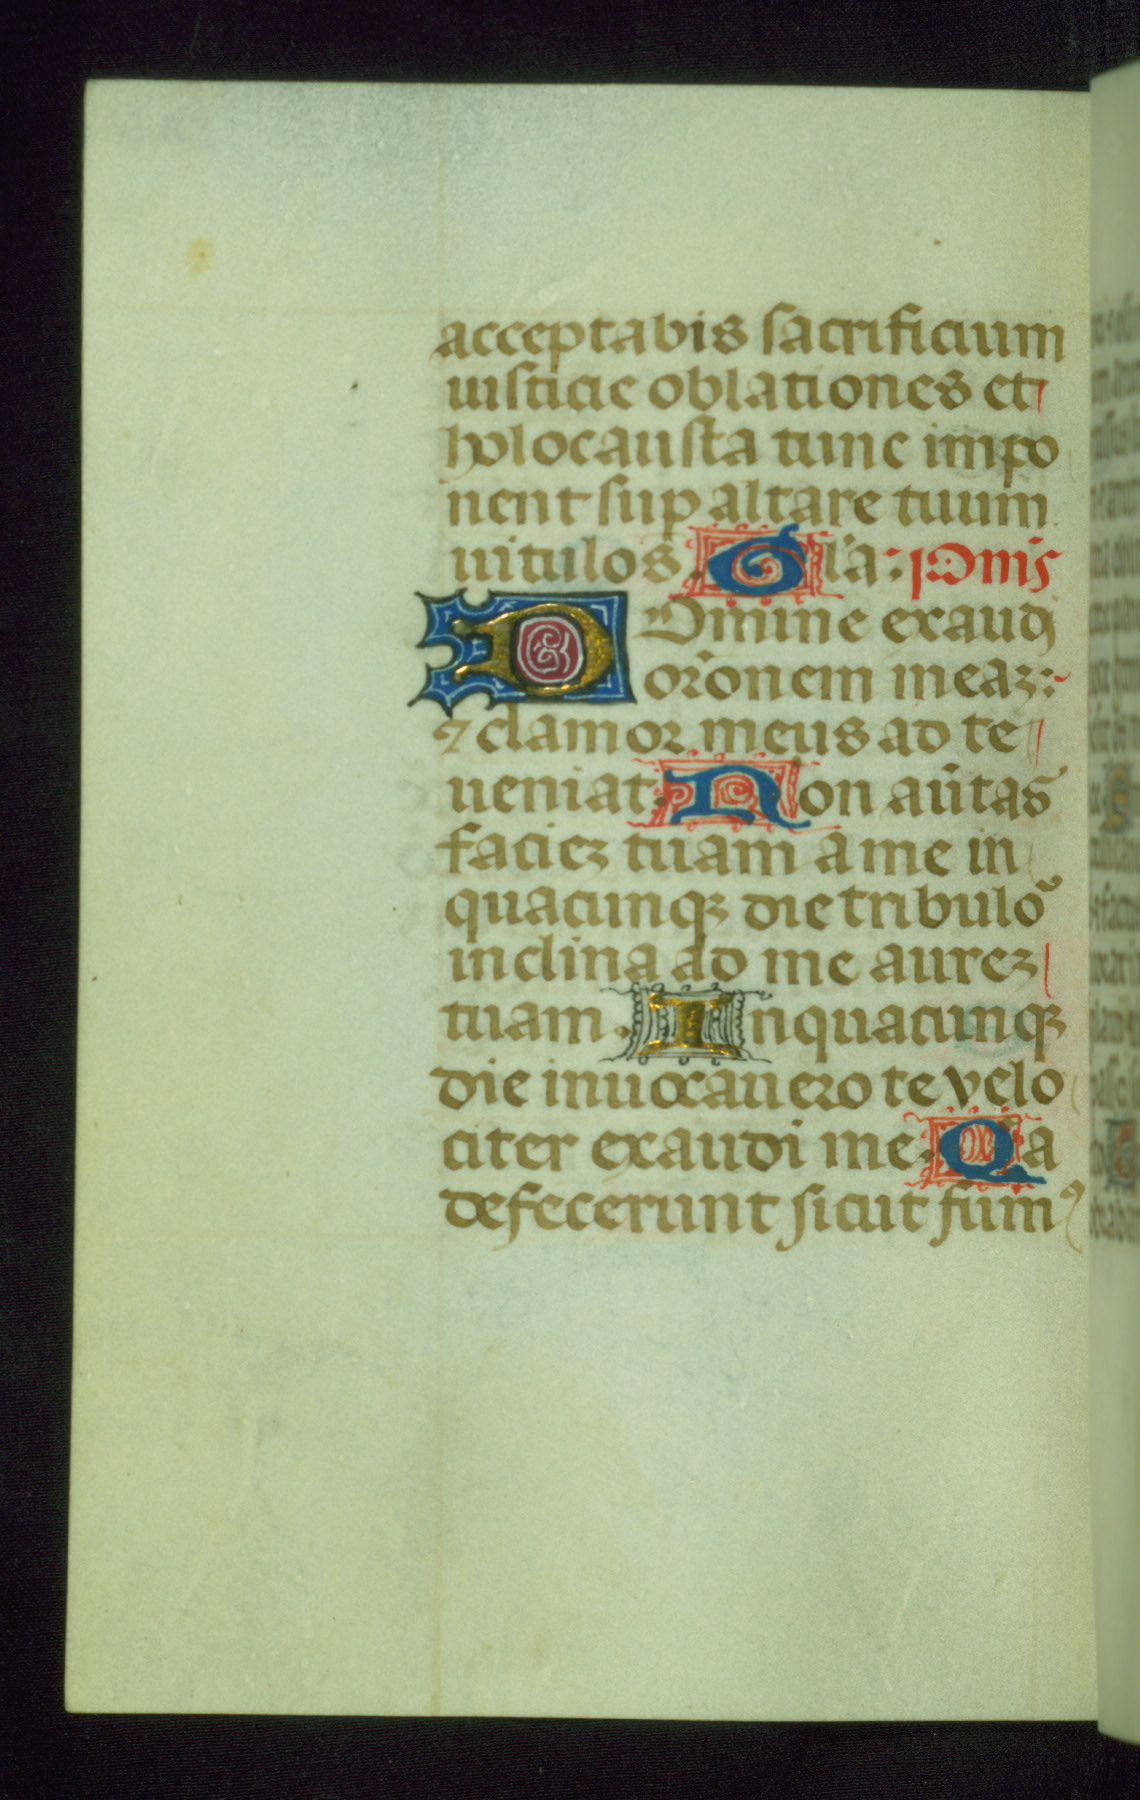 acceptabis sacrificium
iusticie oblationes et
holocausta tunc impo
nent sup altare tuum
uitulos. Gl'a: ps Dauis
Domine exaudi
or̃onem meaz:
⁊ clamor meus ad te
ueniat. Non aũtas
faciez tuam a me in
quacunqꝫ die tribulo᷑
inclina ad me aurez
tuam. In quacunqꝫ
die inuocauero te velo
citer exaudi me. Q̃a
defecerunt sicut fumꝰ